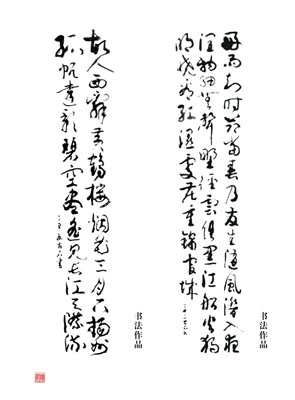 好雨知时节当春乃发生随风潜入夜
润物细无声野径云俱黑江船火独
明晓看红湿处花重锦官城
书法作品
故人西辞黄鹤楼烟花三月下扬州
孤帆远影碧空尽唯见长江天际流
书法作品